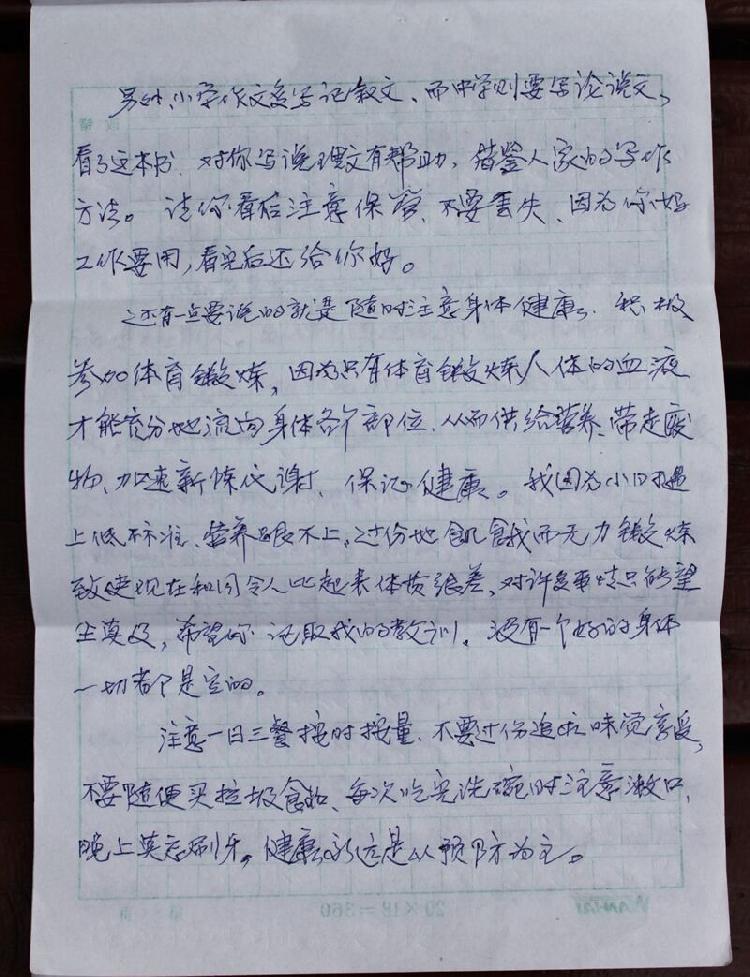 另外,小学作文多写记叙文、而中学则要写论说文,
看了这本书、对你写说理文有帮助,借鉴人家的写作
方法。请你看后注意保管、不要丢失、因为你妈
工作要用,看完后还给你妈。
还有一点要说的就是随时注意身体健康,积极
参加体育锻炼,因为只有体育锻炼人体的血液
才能充分地流向身体各个部位、从而供给营养、带走废
物、加速新陈代谢、保证健康。我因为小时遇
上低标准、营养跟不上,过份地饥饿而无力锻炼
致使现在和同令人比起来体质很差、对许多事情只能望
尘莫及,希望你记取我的教训。没有一个好的身体
一切都是空的。
注意一日三餐按时按量、不要过份追啦味觉享受,
不要随便买垃圾食物、每次吃完洗碗时注意漱口,
晚上莫忘刷牙。健康永远是以预防为主。
20×18=360